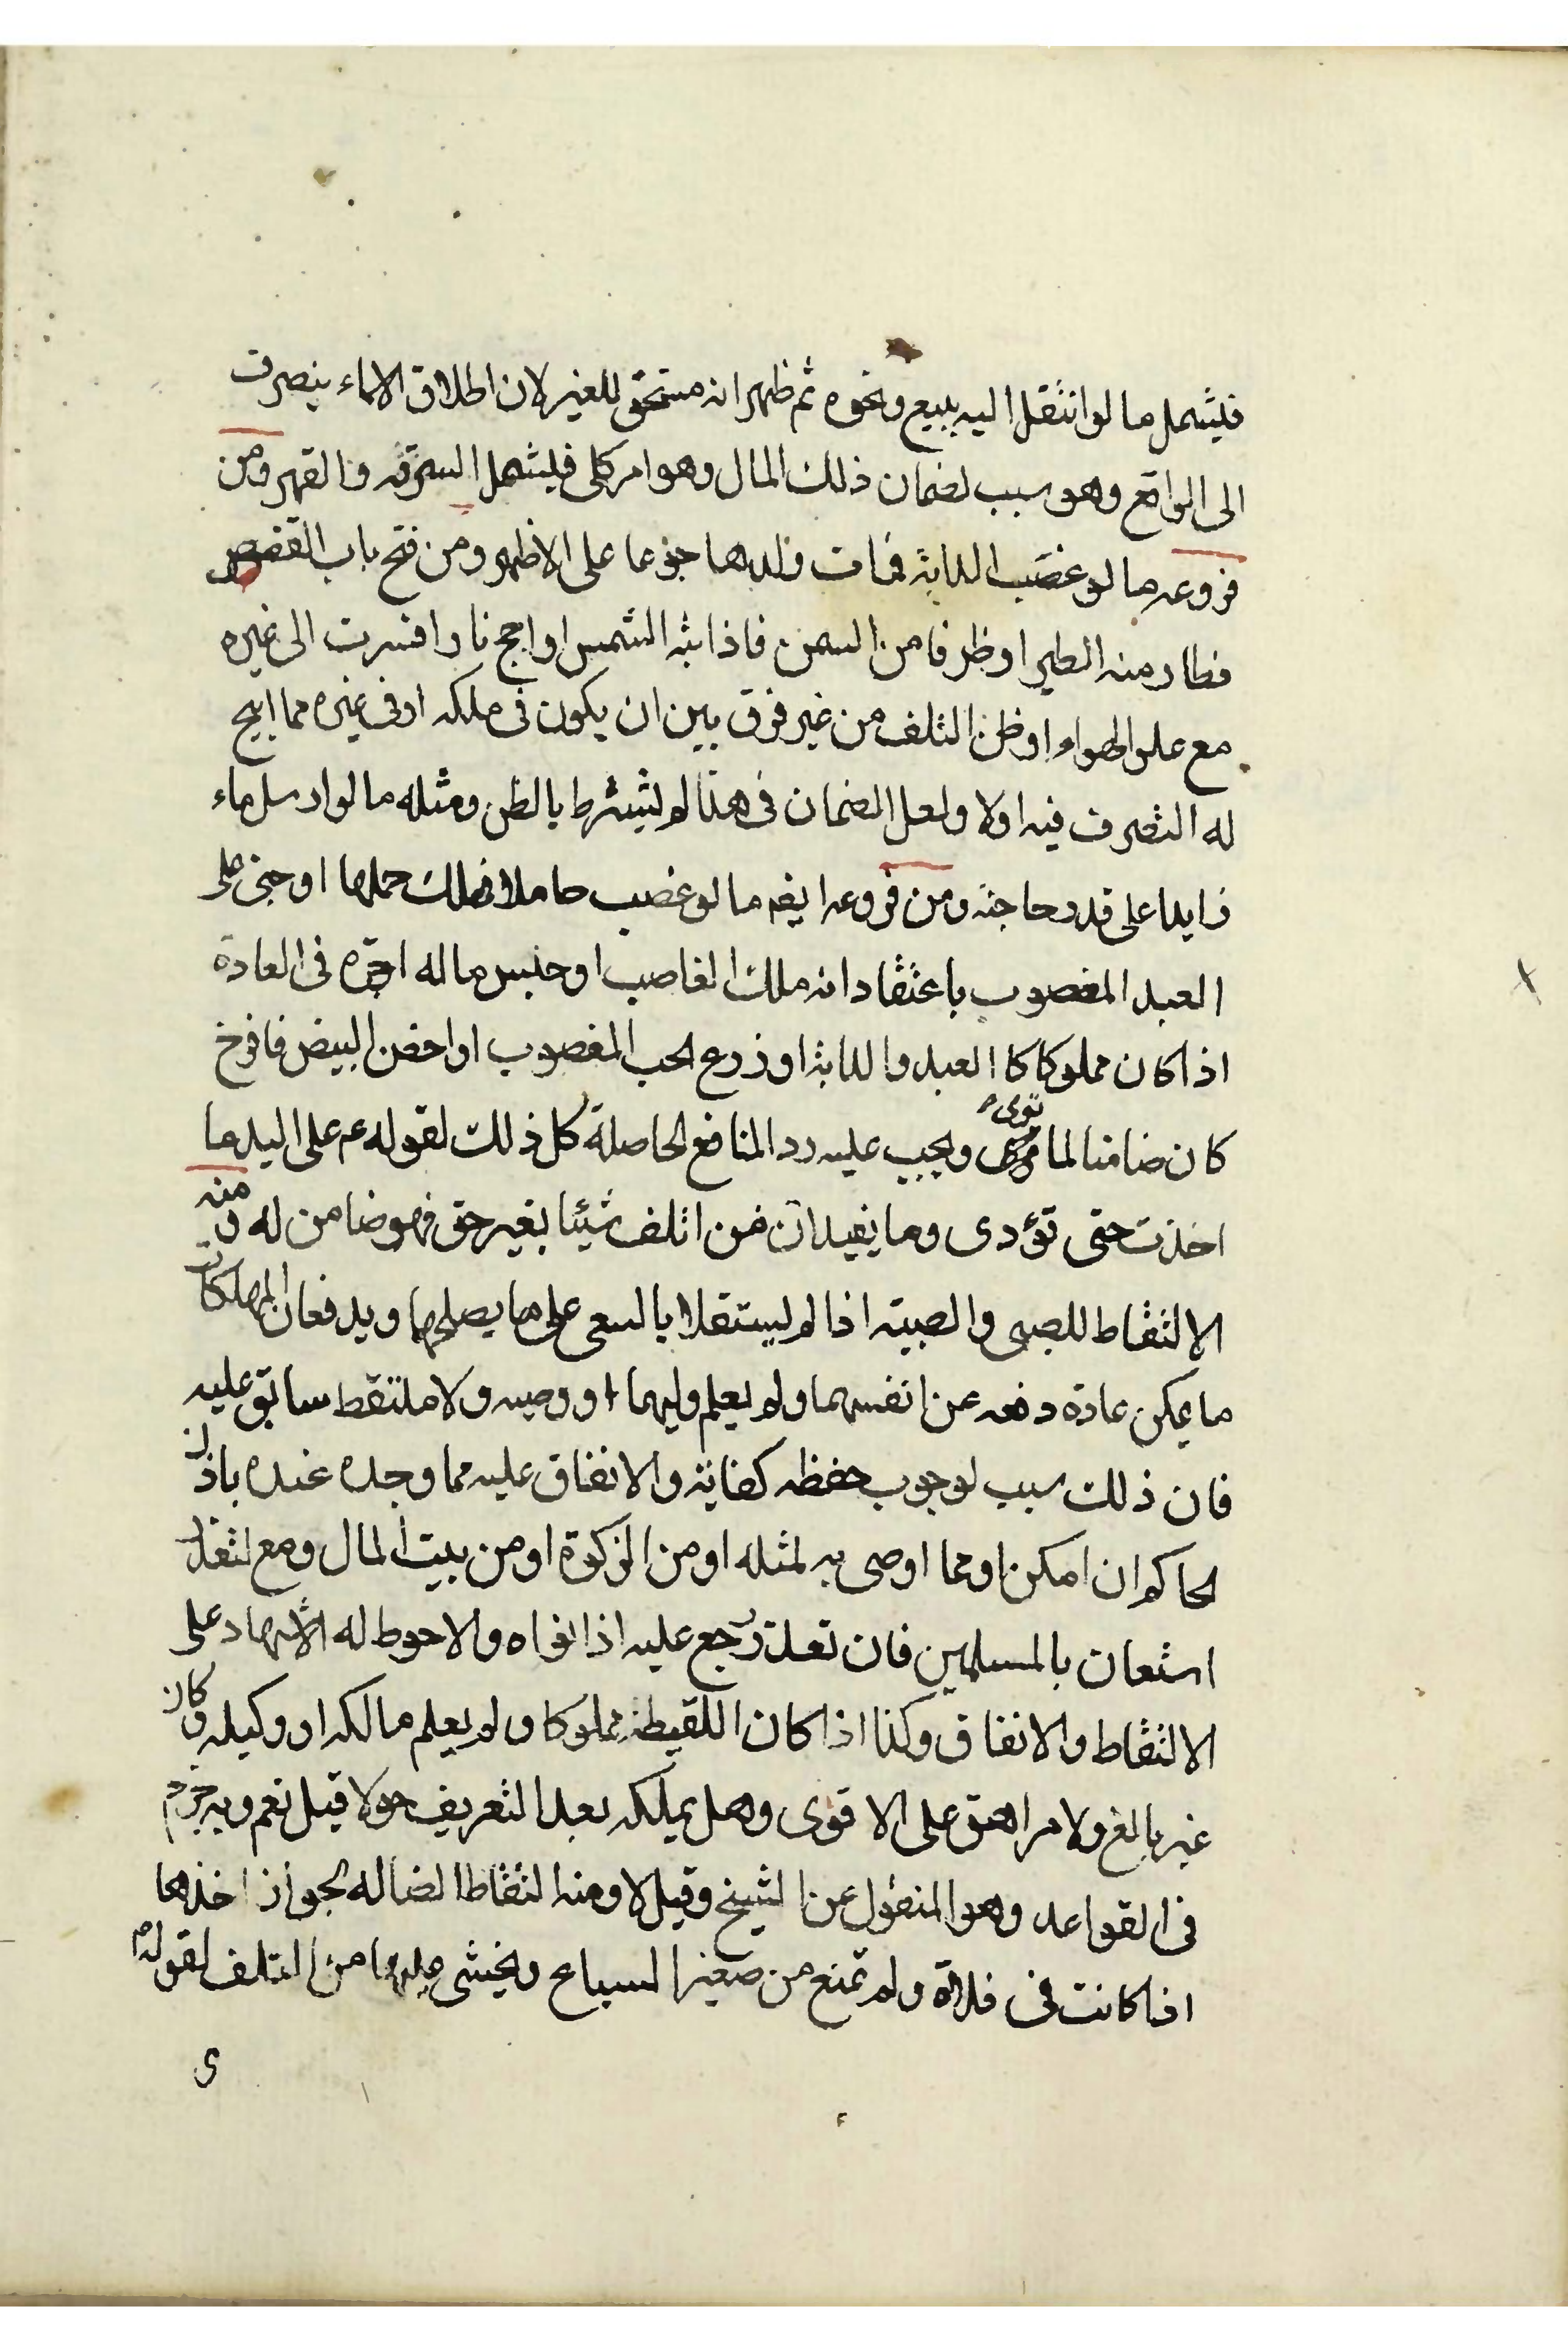 فليشمل ما لو انتقل اليه ببيع ونحوه ثم ظهر انه مستحق للغير لان اطلاق الاسماء ينصرف
الى الواقع وهو سبب لضمان ذلك المال وهو امر كلى فليشمل السرقه والقهر ومن
فروعه ما لو غصب الدابة فمات ولدها جوعا على الاظهر ومن فتح باب القفص
فطار منه الطير او ظرفا من السمن فاذابته الشمس او اجج نارا فسرت الى غيره
مع علو الهواء او ظن التلف من غير فرق بين ان يكون فى ملكه او فى غيره مما ابيح
له التصرف فيه اولا ولعل الضمان فى هذا لم يشترط بالظن ومثله ما لو ارسل ماء
زايدا على قدر حاجته ومن فروعه ايضه ما لو غصب حاملا فهلك حملها او جنى على
العبد المغصوب باعتقاد انه ملك الغاصب او حبس ما له اجرة فى العادة
اذا كان مملوكا كا العبد والدابة او زرع الحب المغصوب او احضن البيض فافرخ
كان ضامنا لما توى ويجب عليه رد المنافع الحاصلة كل ذلك لقوله عم على اليد ما
اخذت حتى تؤدى وما يفيد ان من اتلف شيئا بغير حق فهو ضامن له ومنه
الالتقاط للصبى والصبيه اذا لم يستقلا بالسعى على ما يصلحهما ويدفعان المهلكات
ما يمكن عادة دفعه عن انفسهما ولم يعلم وليهما او وصيه ولا ملتقط سابق عليه
فان ذلك سبب لوجوب حفظه كفاية والانفاق عليه مما وجده عنده باذن
الحاكم ان امكن او مما اوصى به لمثله او من الزكوة او من بيت المال ومع تعذر
استعان بالمسلمين فان تعذر رجع عليه اذا نواه والاحوط له الاشهاد على
الالتقاط والانفاق وكذا اذا كان اللقيط مملوكا ولم يعلم مالكه او وكيله وكان
غير بالغ ولا مراهق على الاقوى وهل يملكه بعد التعريف حولا قيل نعم وبه جزم
فى القواعد وهو المنقول عن الشيخ وقيل لا ومنه التقاط الضاله لجواز اخذها
اذا كانت فى فلاة ولم تمنع من صغير السباع ويخشى عليها من التلف لقوله م